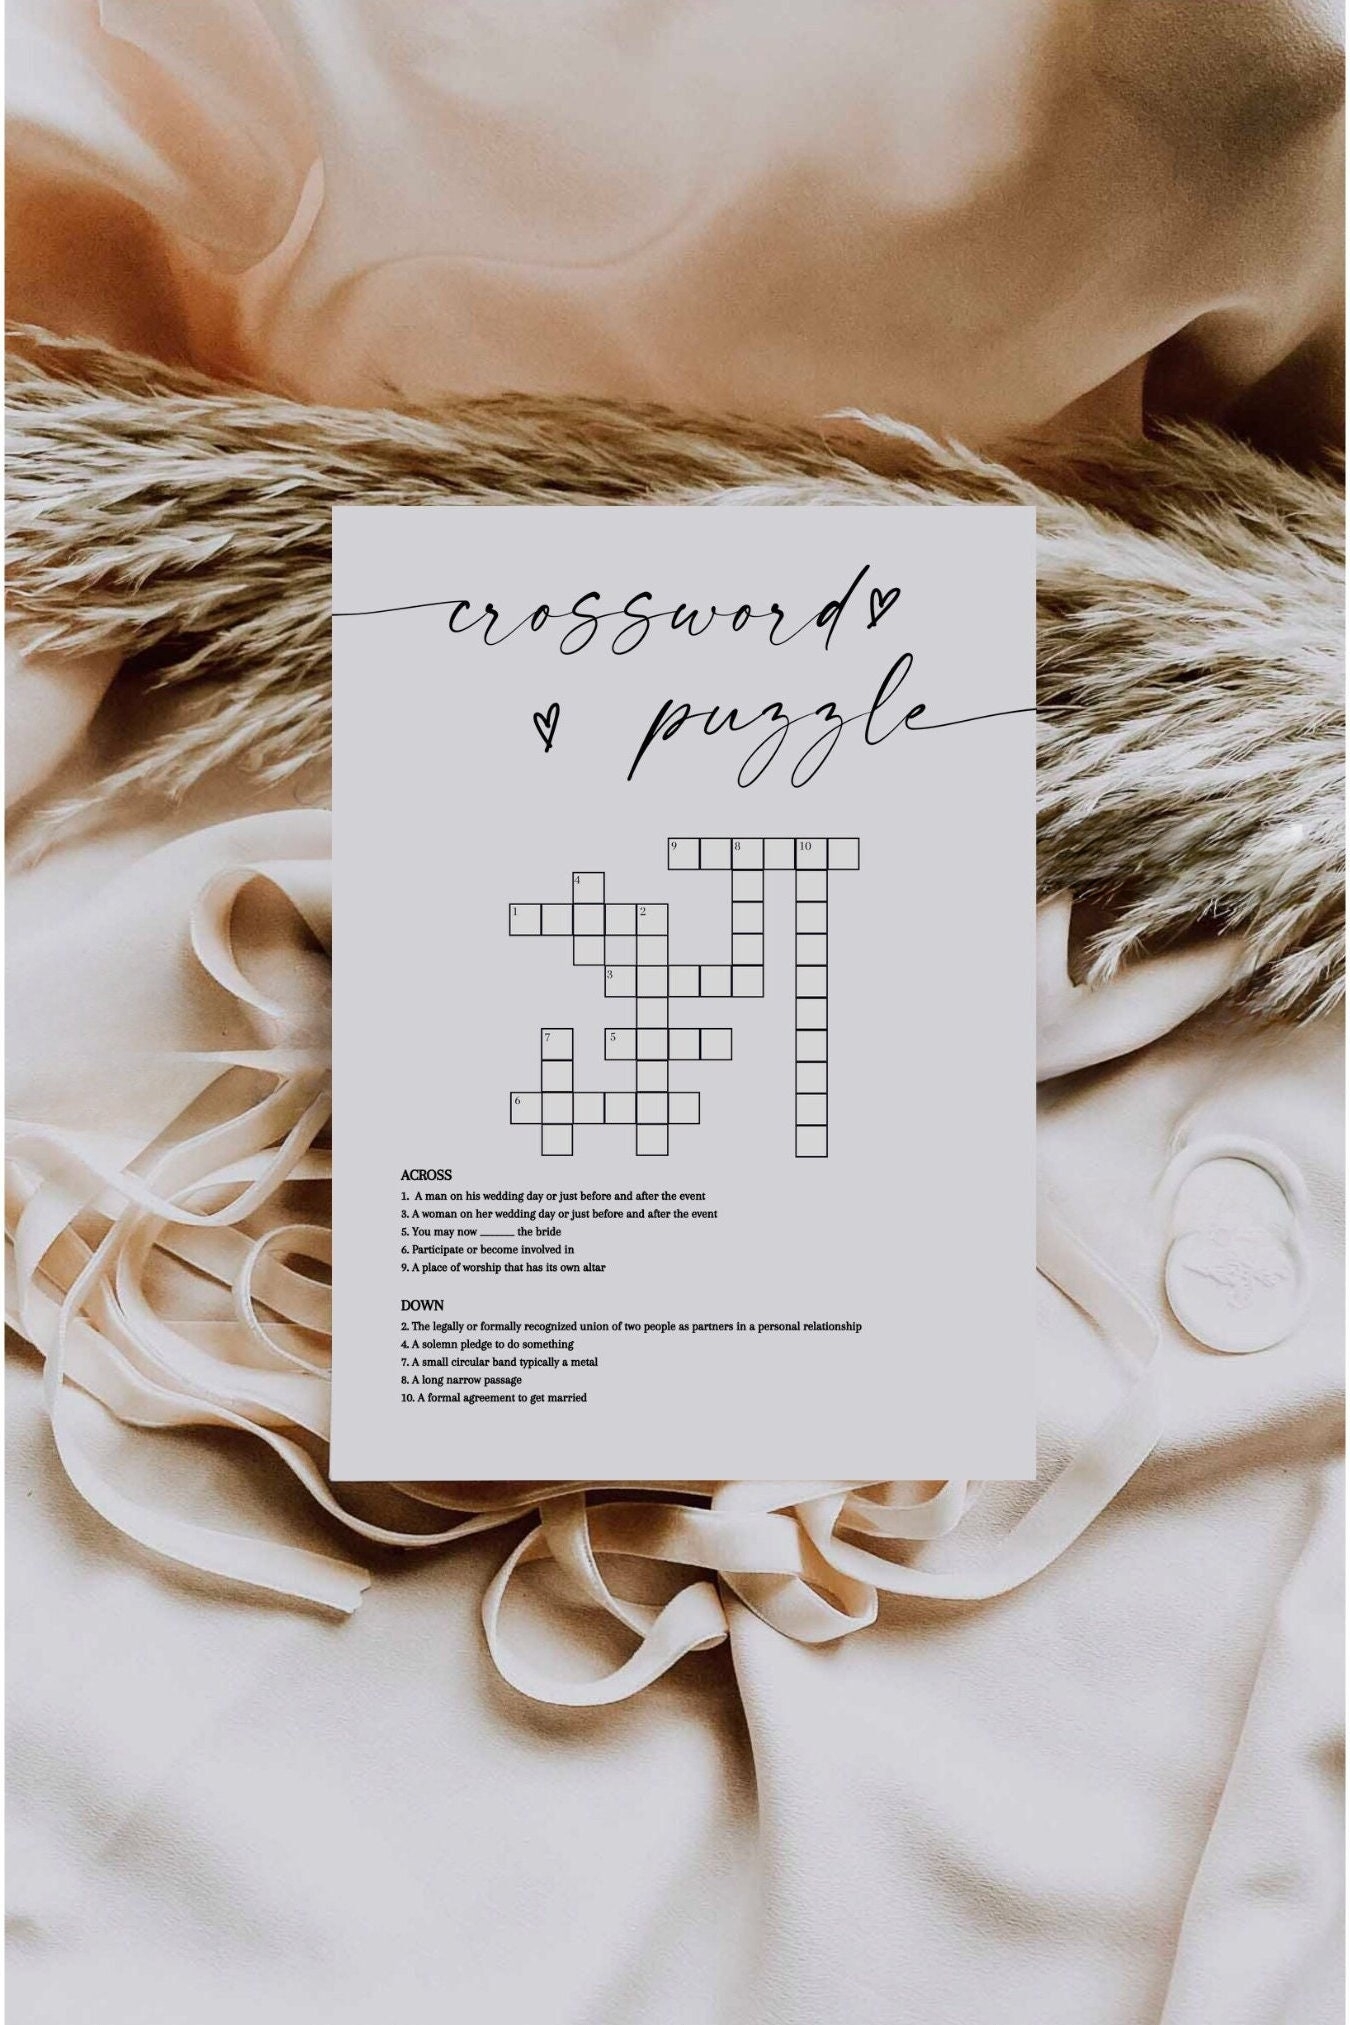 crossword
puzzle
9 8 10
4
1 2
3
7 5
6
ACROSS
1. A man on his wedding day or just before and after the event
3. A woman on her wedding day or just before and after the event
5. You may now ______ the bride
6. Participate or become involved in
9. A place of worship that has its own altar
DOWN
2. The legally or formally recognized union of two people as partners in a personal relationship
4. A solemn pledge to do something
7. A small circular band typically a metal
8. A long narrow passage
10. A formal agreement to get married